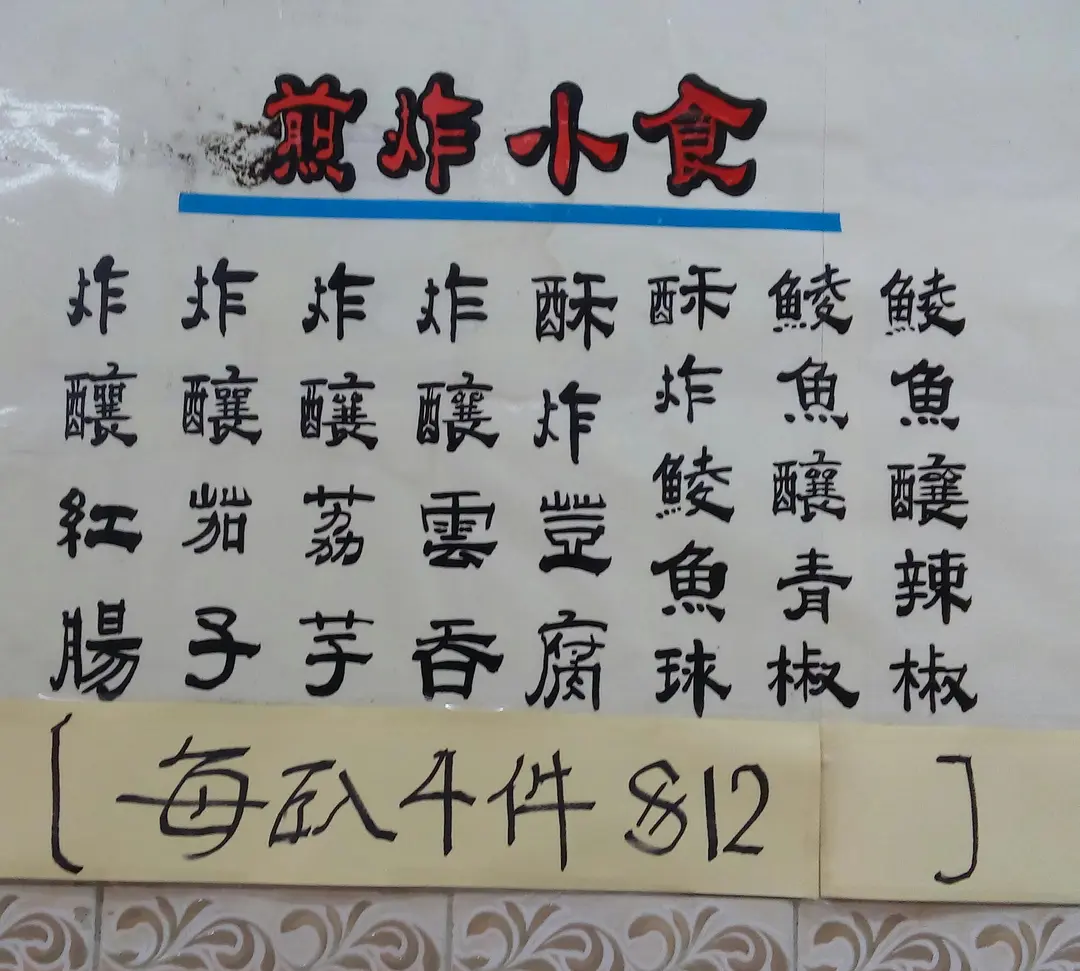 煎炸小食
鯪魚釀辣椒
鯪魚釀青椒
酥炸鯪魚球
酥炸荳腐
炸釀雲吞
炸釀荔芋
炸釀茄子
炸釀紅腸
[每 4件 $12 ]